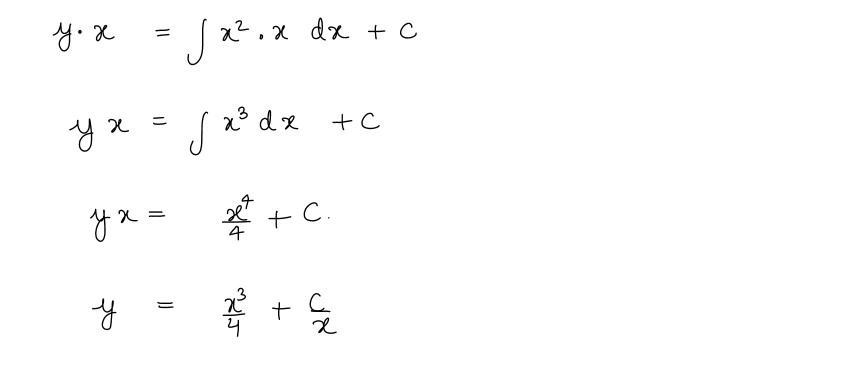 y· x = ∫ x² . x dx + c
y x = ∫ x³ d x + C
y x = x⁴/4 + C.
y = x³/4 + C/x